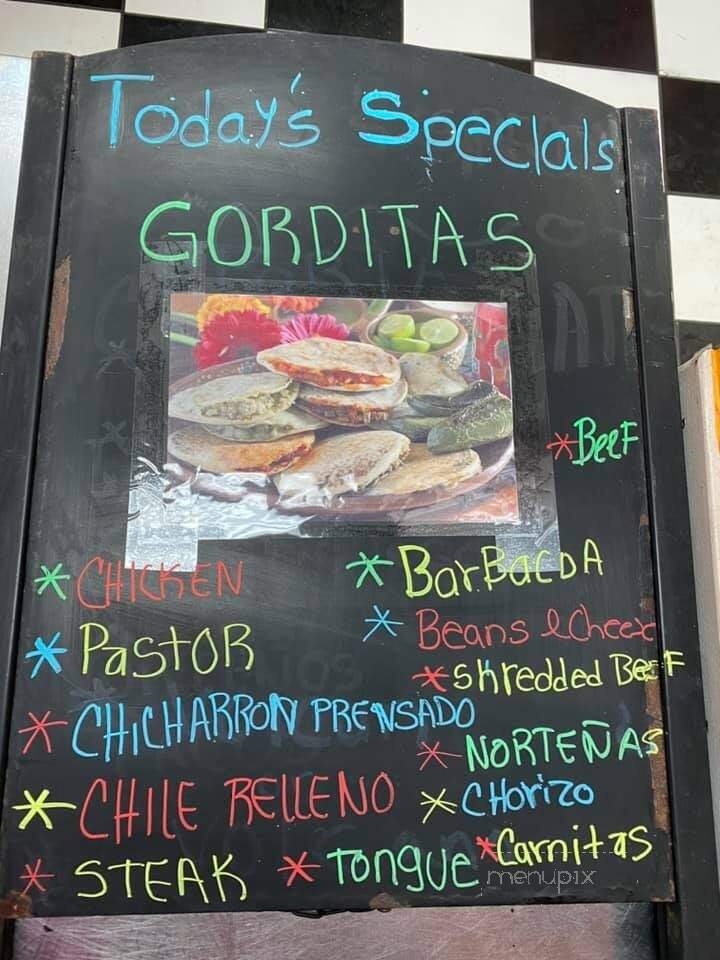 Today's Specials
GORDITAS
*Beef
*CHICKEN
*BarBacoA
*PastOR
*Beans & Cheese
*shredded Beef
*CHICHARRON PRENSADO
*NORTEÑAS
*CHILE RELLENO
*CHorizo
*STEAK
*Tongue
*Carnitas
menupix